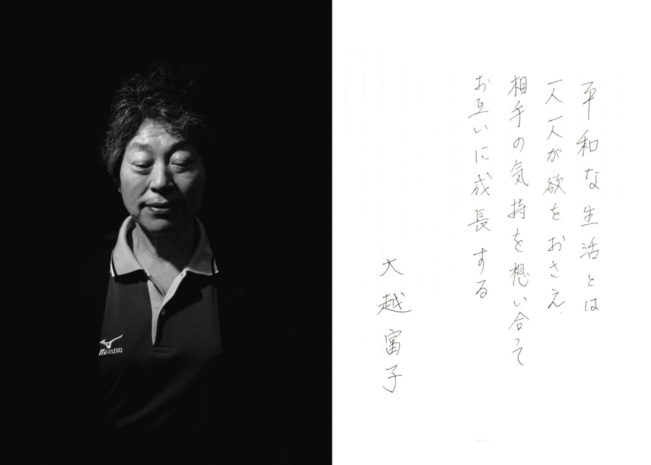 平和な生活とは
一人一人が欲をおさえ
相手の気持を想い合って
お互いに成長する
大越富子
MIZUNO